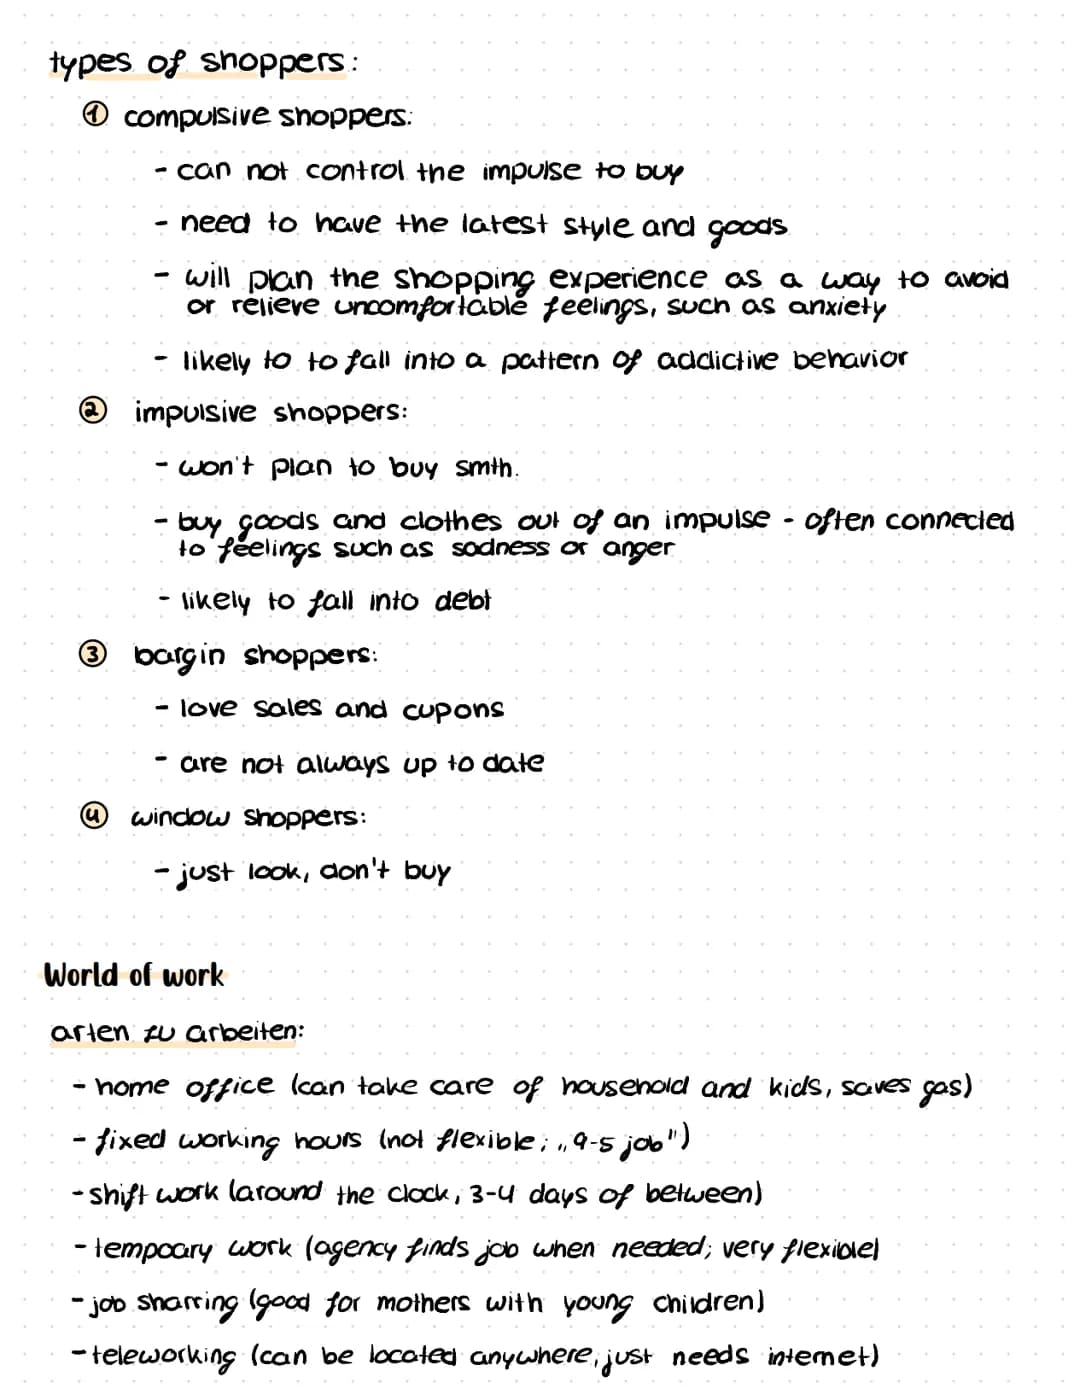 types of shoppers:
1 compulsive shoppers:
- can not control the impulse to buy
- need to have the latest style and goods
- will plan the shopping experience as a way to avoid
or relieve uncomfortable feelings, such as anxiety
- likely to to fall into a pattern of addictive behavior
2 impulsive shoppers:
- won't plan to buy smth.
- buy goods and clothes out of an impulse - often connected
to feelings such as sadness or anger
- likely to fall into debt
3 bargin shoppers:
- love sales and cupons
- are not always up to date
4 window shoppers:
- just look, don't buy
World of work
arten zu arbeiten:
- home office (can take care of household and kids, saves gas)
- fixed working hours (not flexible; „9-5 job")
- shift work (around the clock, 3-4 days of between)
- tempoary work (agency finds job when needed; very flexible)
- job sharring (good for mothers with young children)
- teleworking (can be located anywhere, just needs internet)